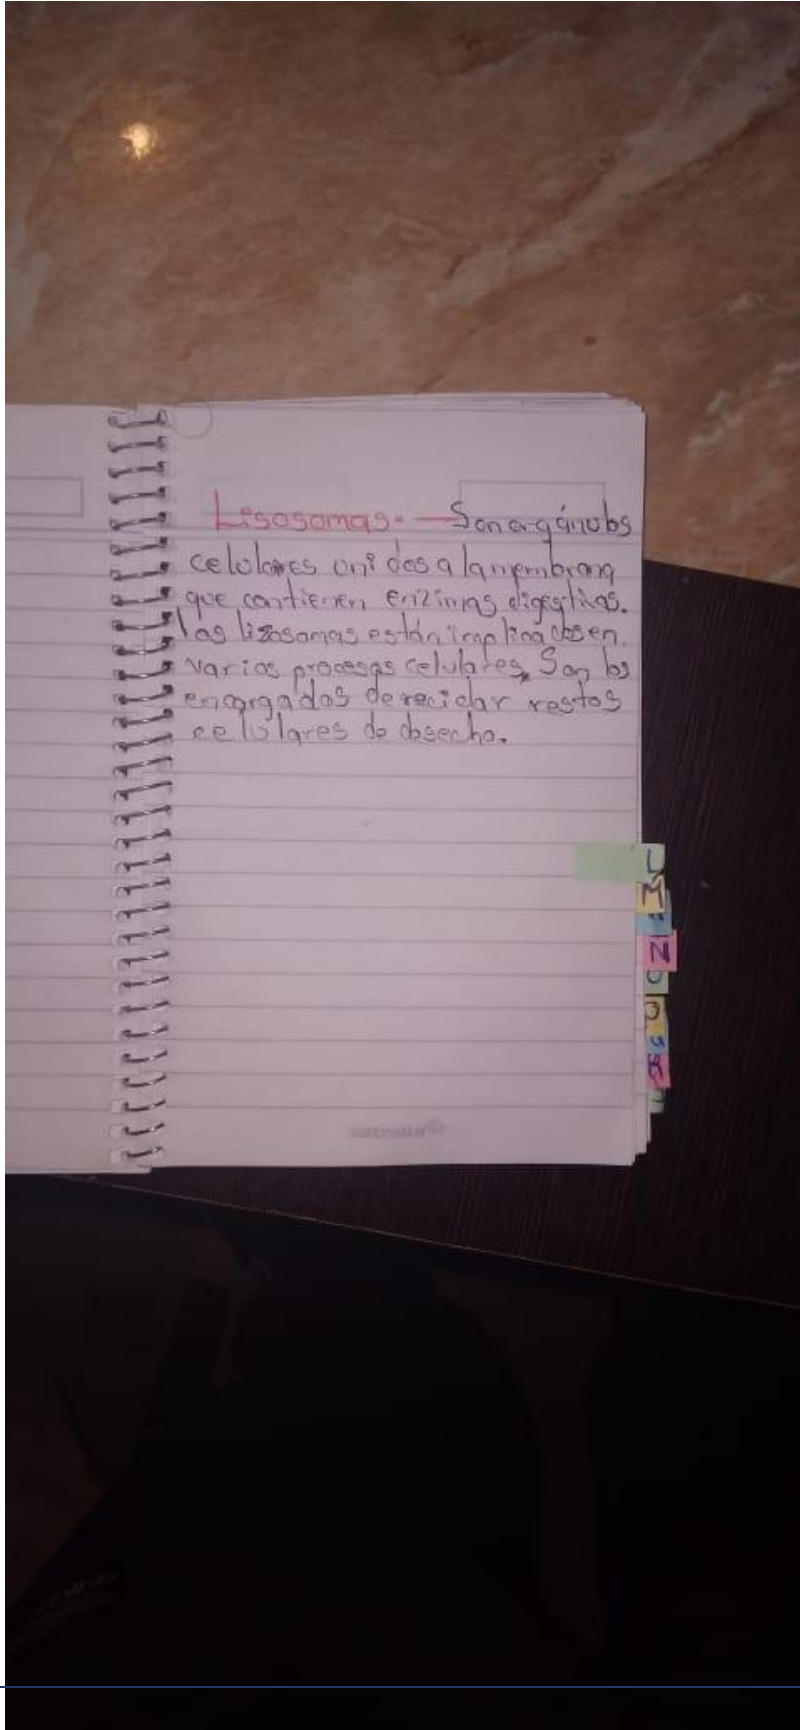 Lisosomas. — Son orgánulos
celulares unidos a la membrana
que contienen enzimas digestivas.
los lisosomas están implicados en
varios procesos celulares, Son los
encargados de reciclar restos
celulares de desecho.
L
M
N
O